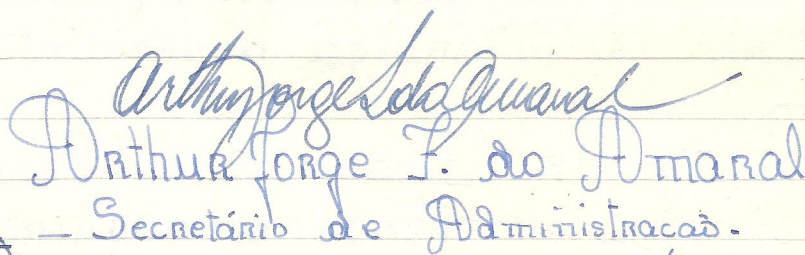 Arthur Jorge F. do Amaral
Arthur Jorge F. do Amaral
— Secretário de Administracaõ.